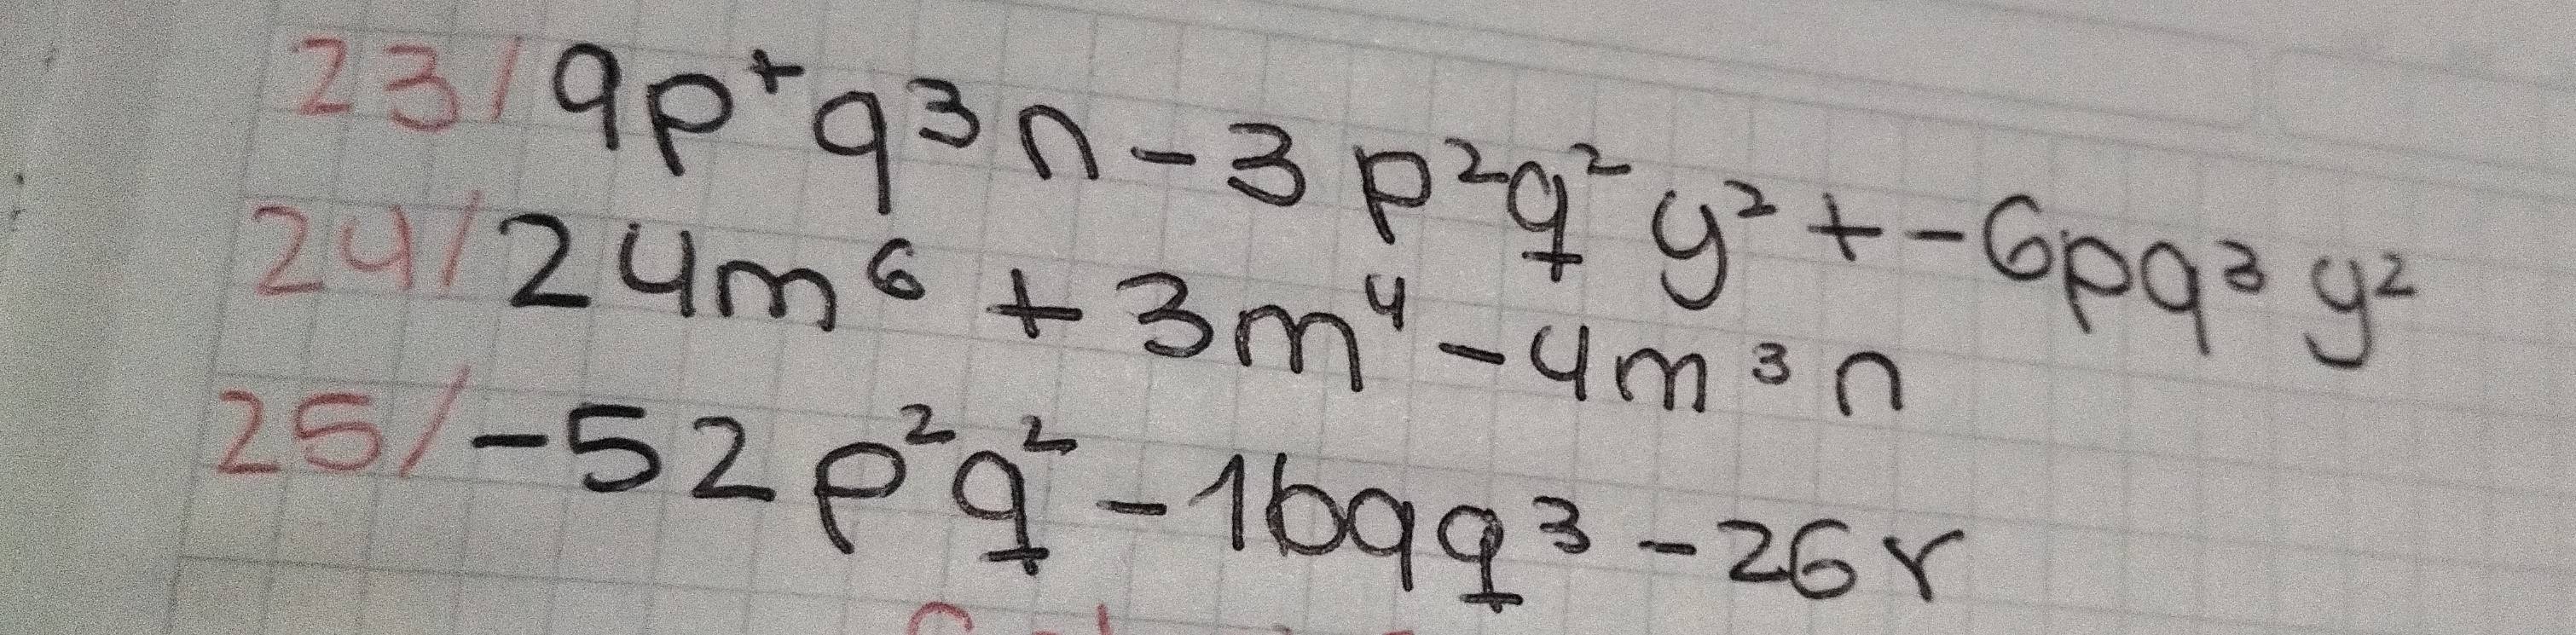 23/ 9p⁺q³n - 3p²q²y² + -6pq³y²
24/ 24m⁶ + 3m⁴ - 4m³n
25/ -52p²q² - 16qq³ - 26r